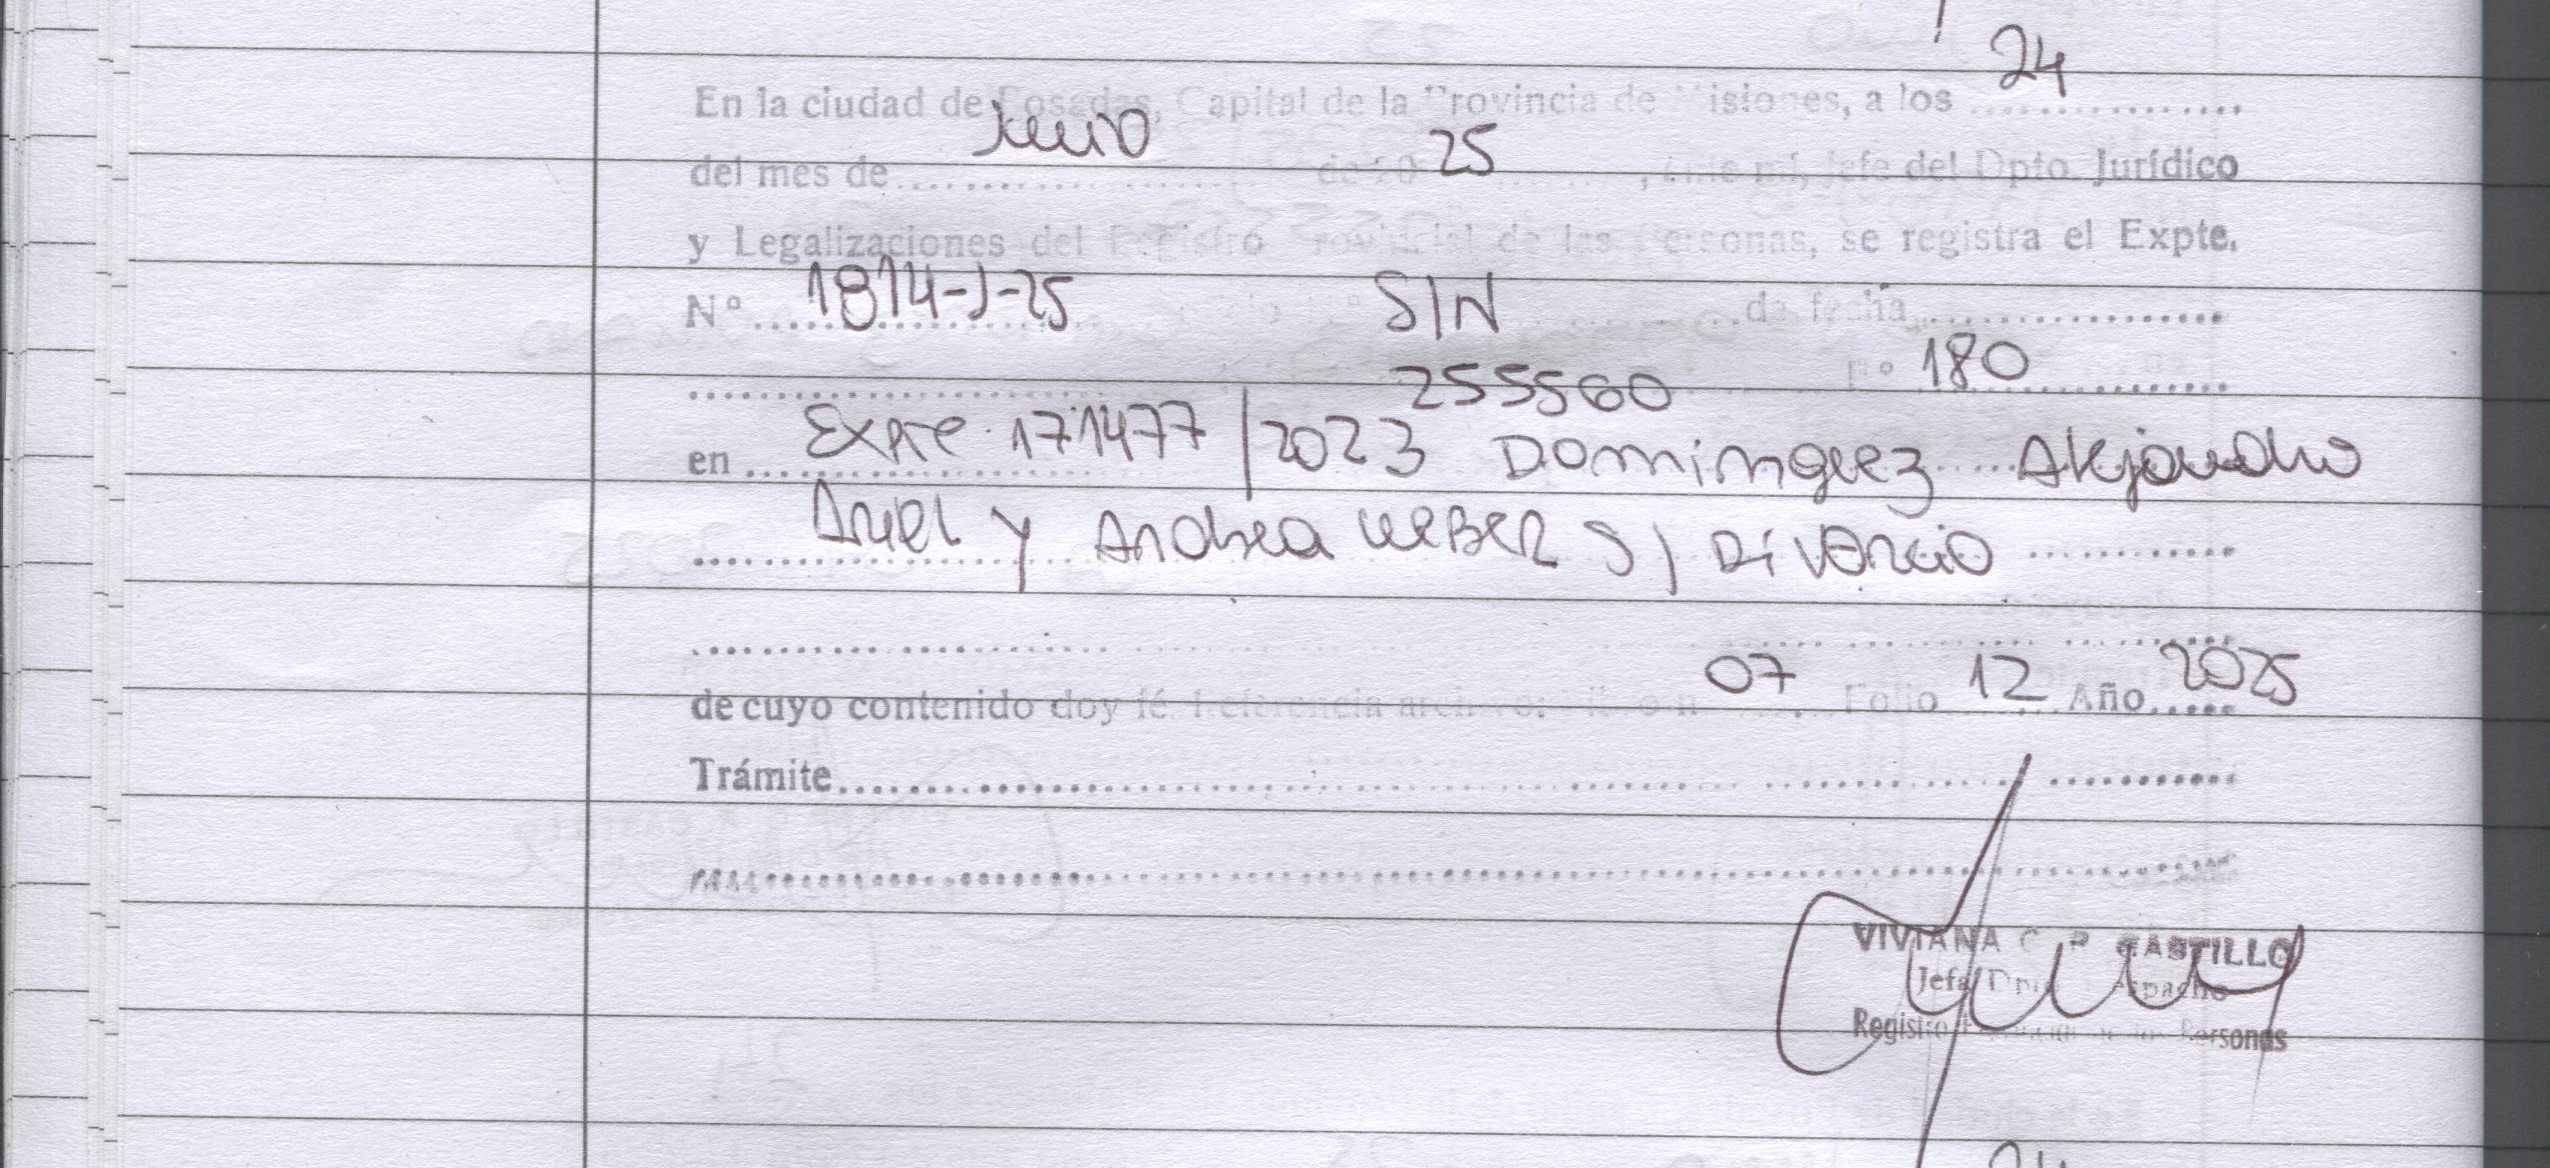 24
En la ciudad de Posadas, Capital de la Provincia de Misiones, a los
Junio 25
del mes de de 20 , ante mí, Jefe del Dpto. Jurídico
y Legalizaciones del Registro Provincial de las Personas, se registra el Expte.
Nº 1814-J-25 S/N de fecha
255560 Nº 180
en Expte. 171477/2023 Dominguez Alejandro
Ariel y Andrea WEBER S/ Divorcio
de cuyo contenido doy fé. Referencia archivo: 07 Folio 12 Año 2025
Trámite
VIVIANA C. P. CASTILLO
Jefa Dpto. Despacho
Registro Provincial de las Personas